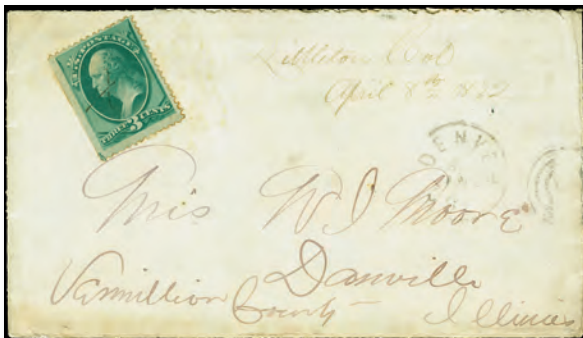 U.S. POSTAGE
THREE 3 CENTS
Littleton Col
April 8th
DENVE
Mis W J Moore
Danville
Vermillion County Illinois